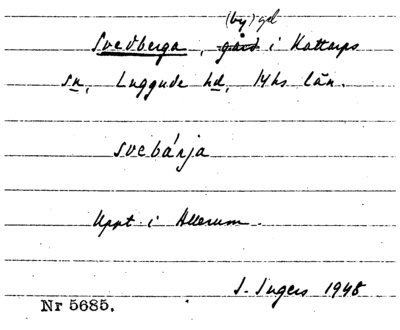 (by) gd
Svedberga, gård i Kattarps
sn, Luggude hd, Mhs län.
svebárja
Uppt. i Allerum.
I. Ingers 1948
Nr 5685.